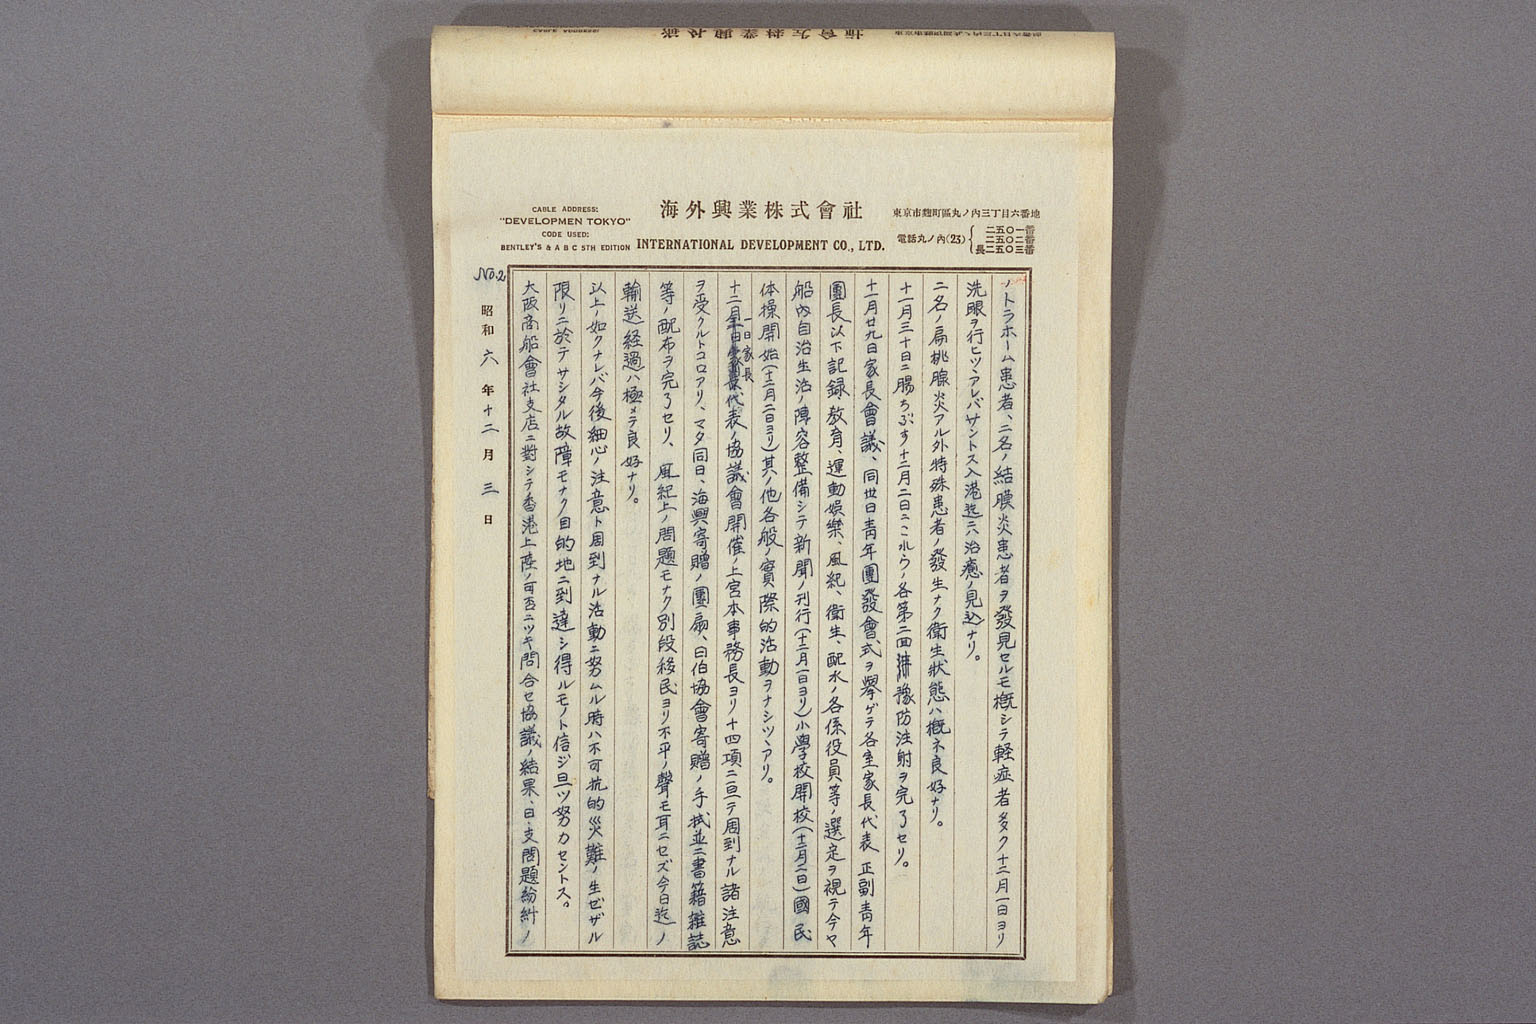 CABLE ADDRESS:
"DEVELOPMEN TOKYO"
CODE USED:
BENTLEY'S & A B C 5TH EDITION
海外興業株式會社
INTERNATIONAL DEVELOPMENT CO., LTD.
東京市麹町區丸ノ內三丁目六番地
電話丸ノ內(23)
二五〇一番
二五〇二番
長二五〇三番
No.2
ノトラホーム患者、二名ノ結膜炎患者ヲ發見セルモ概シテ軽症者多ク十二月一日ヨリ
洗眼ヲ行ヒツヽアレバサントス入港迄ニハ治癒ノ見込ナリ。
二名ノ扁桃腺炎アル外特殊患者ノ發生ナク衛生狀態ハ概ネ良好ナリ。
十一月三十日ニ腸ちぶす十二月二日ニこれらノ各第二回豫防注射ヲ完了セリ。
十一月廿九日家長會議、同卅日靑年團發會式ヲ擧ゲテ各室家長代表正副靑年
團長以下記録、敎育、運動娯樂、風紀、衛生、配水ノ各係役員等ノ選定ヲ視テ今ヤ
船內自治生活ノ陣容整備シテ新聞ノ刊行(十二月一日ヨリ)小學校開校(十二月二日)國民
体操開始(十二月二日ヨリ)其ノ他各般ノ實際的活動ヲナシツヽアリ。
十二月一日家長代表ノ協議會開催ノ上宮本事務長ヨリ十四項ニ亘テ周到ナル諸注意
ヲ受クルトコロアリ、マタ同日、海興寄贈ノ團扇、日伯協會寄贈ノ手拭並ニ書籍雑誌
等ノ配布ヲ完了セリ、風紀上ノ問題モナク別段移民ヨリ不平ノ聲モ耳ニセズ今日迄ノ
輸送経過ハ極メテ良好ナリ。
以上ノ如クナレバ今後細心ノ注意ト周到ナル活動ニ努ムル時ハ不可抗的災難ノ生ゼザル
限リニ於テサシタル故障モナク目的地ニ到達シ得ルモノト信ジ且ツ努力セントス。
大阪商船會社支店ニ對シテ香港上陸ノ可否ニツキ問合セ協議ノ結果、日・支問題紛糾ノ
昭和六年十二月三日